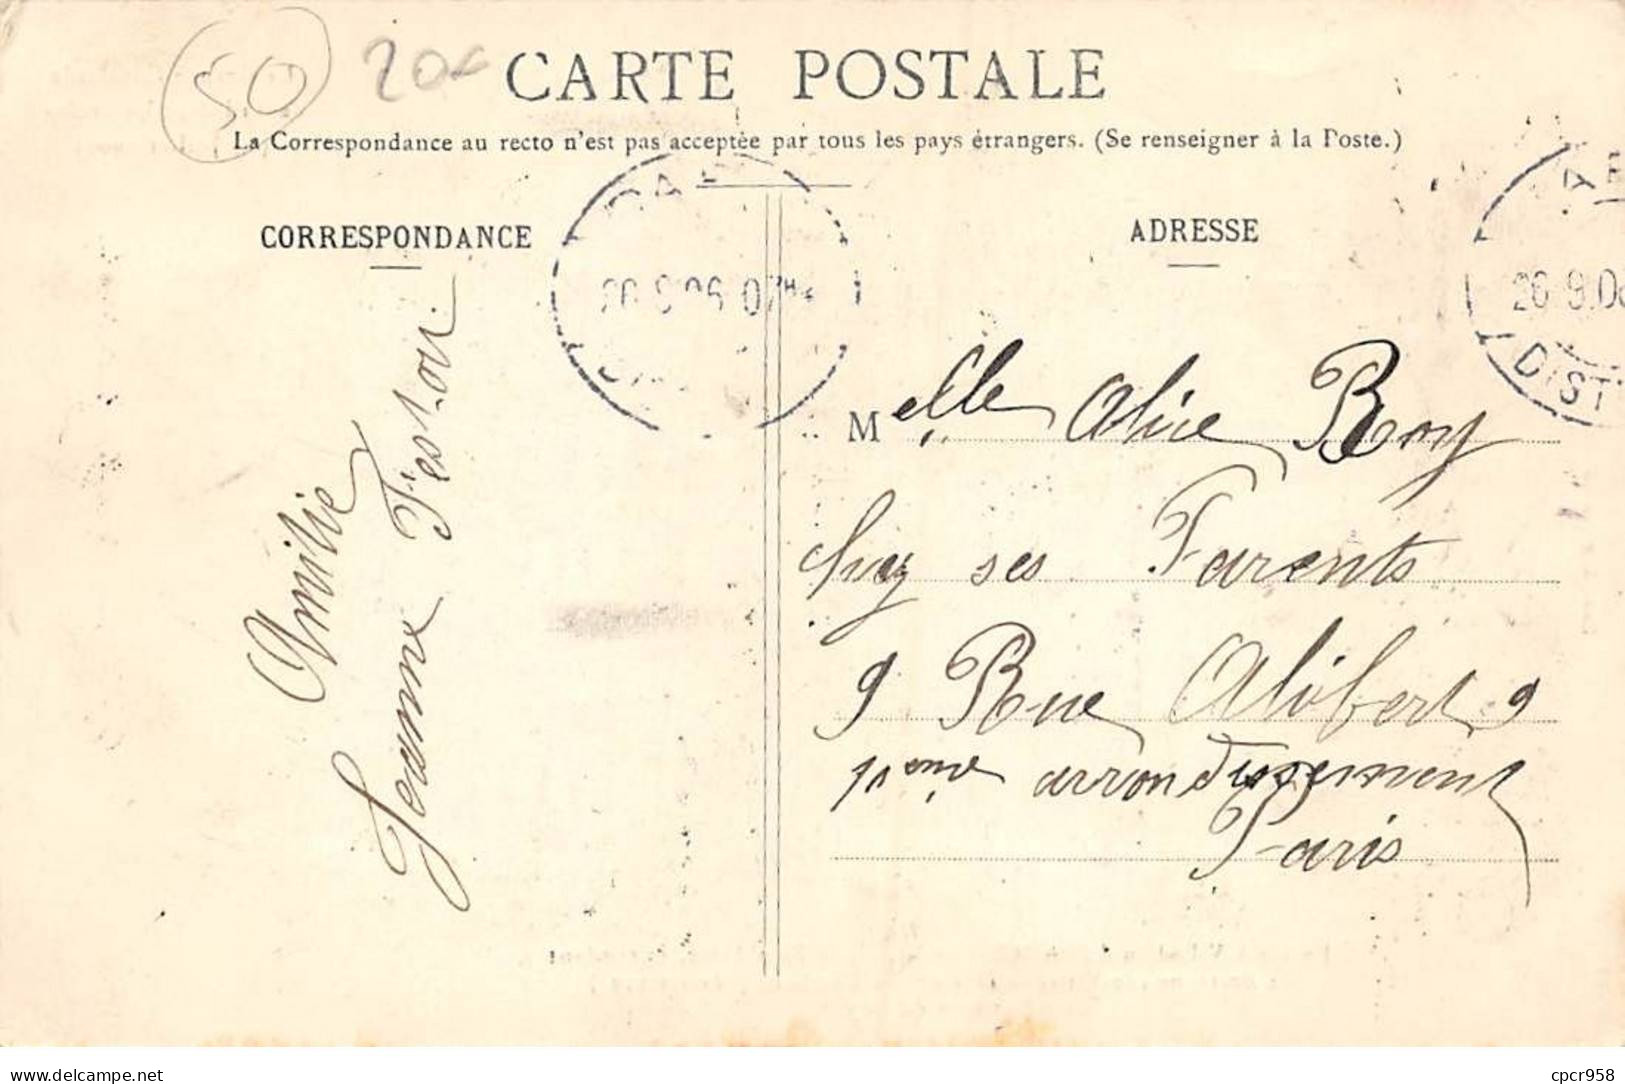 50
20€
CARTE POSTALE
La Correspondance au recto n'est pas acceptée par tous les pays étrangers. (Se renseigner à la Poste.)
CORRESPONDANCE
Amitié
Jeanne
ADRESSE
Melle Alice Roy
chez ses Parents
9 Rue Alibert 9
arrondissement
Paris
26.9.06
DIST
www.delcampe.net
cpcr958